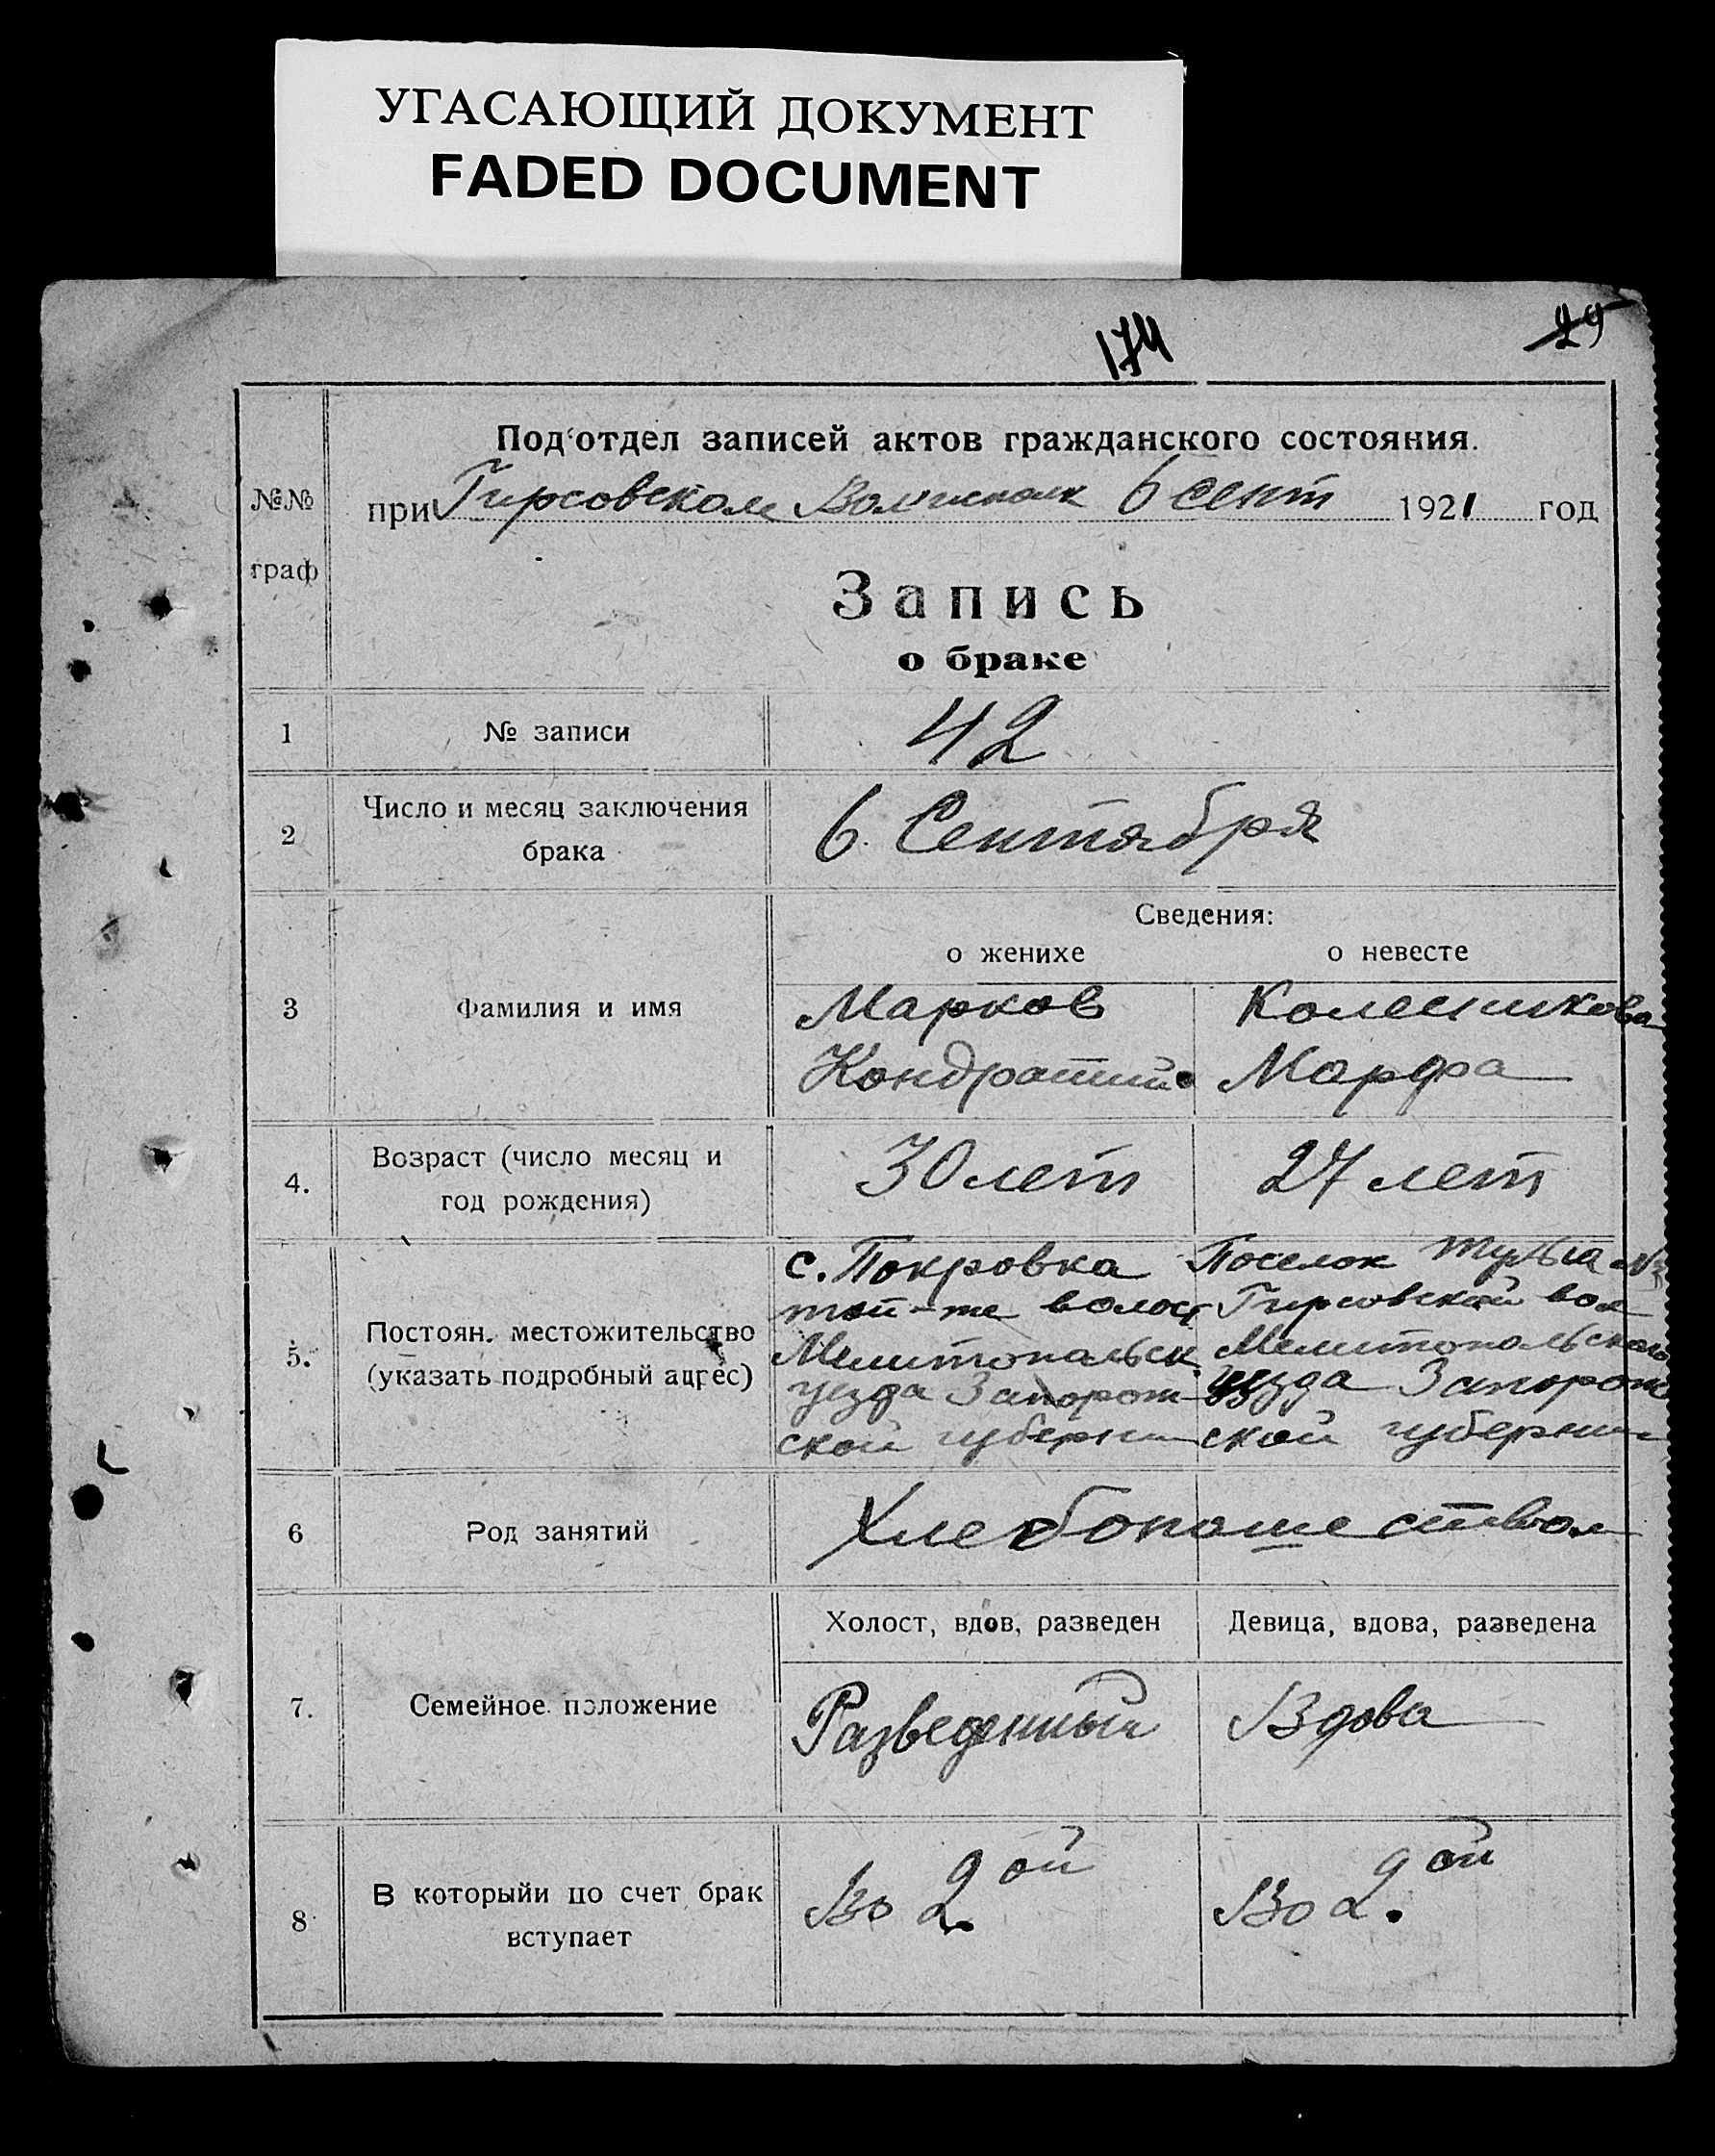 УГАСАЮЩИЙ ДОКУМЕНТ
FADED DOCUMENT
174
29
Под'отдел записей актов гражданского состояния.
№№ граф
при Гирсовском Волисполк 6 сент 1921 год
Запись
о браке
1 № записи 42
2 Число и месяц заключения брака 6. Сентября
Сведения:
о женихе о невесте
3 Фамилия и имя
Марков Колесникова
Кондратий Марфа
4. Возраст (число месяц и год рождения) 30 лет 27 лет
5. Постоян. местожительство (указать подробный адрес)
с. Покровка Поселок
той-же волост Гирсовской вол
Мелитопольск. Мелитопольского
уезда Запорож- уезда Запорож
ской губернии ской губернии
6 Род занятий Хлебопашеством
Холост, вдов, разведен Девица, вдова, разведена
7. Семейное положение Разведенный Вдова
8 В которыйи по счет брак вступает Во 2ой Во 2.ой